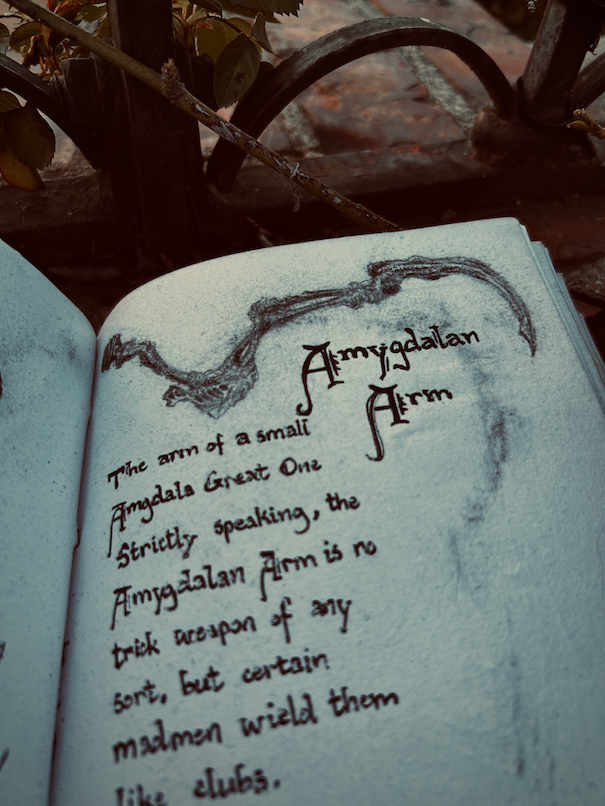 Amygdalan
Arm
The arm of a small
Amgdala Great One
Strictly speaking, the
Amygdalan Arm is no
trick weapon of any
sort, but certain
madmen wield them
like clubs.